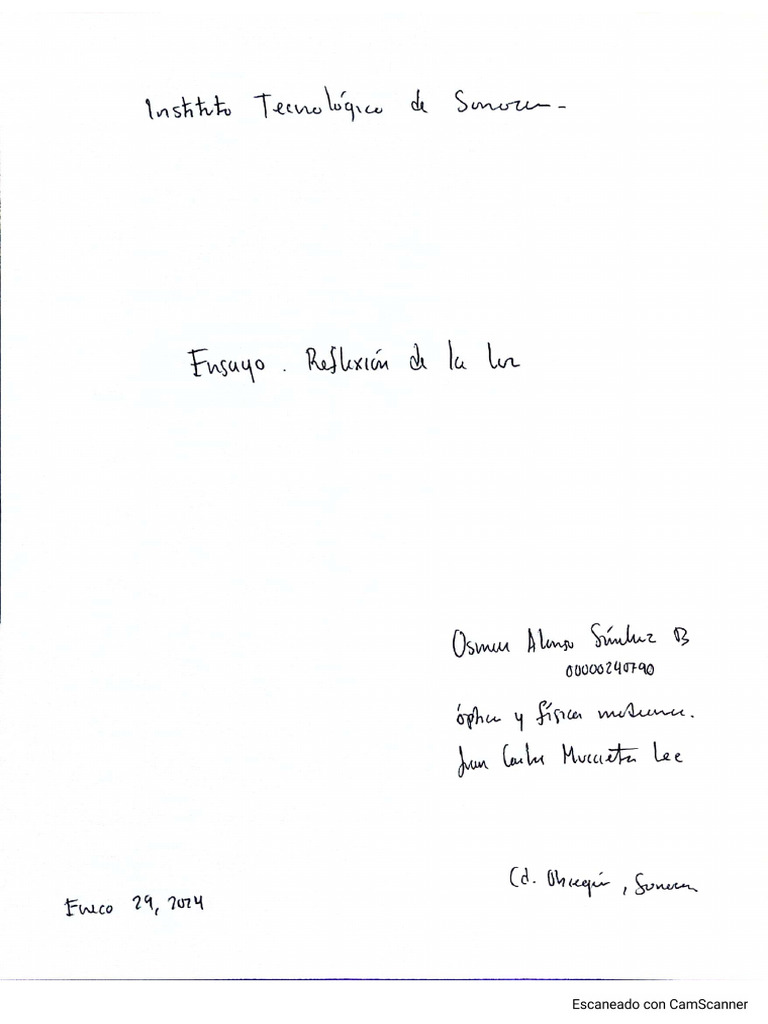 Instituto Tecnológico de Sonora
Ensayo. Reflexión de la luz
Alonso Sánchez B
00000240790
óptica y física moderna.
Juan Carlos Lee
Cd. Obregón, Sonora
Enero 29, 2024
Escaneado con CamScanner